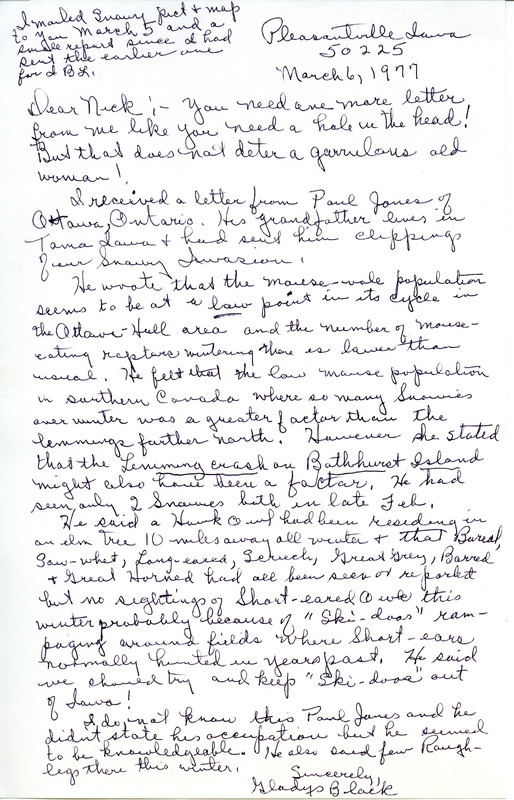 I mailed Snowy pict + map
to you March 5 and a
small report since I had
sent the earlier one
for IBL.
Pleasantville Iowa
50225
March 6, 1977
Dear Nick:- You need one more letter
from me like you need a hole in the head!
But that does not deter a garrulous old
woman!
I received a letter from Paul Jones of
Ottawa, Ontario. His grandfather lives in
Tama Iowa + had sent him clippings
of our Snowy Invasion.
He wrote that the mouse-vole population
seems to be at a low point in its cycle in
the Ottawa-Hull area and the number of mouse-
eating raptors wintering there is lower than
usual. He felt that the low mouse population
in southern Canada where so many Snowies
over winter was a greater factor than the
lemmings farther north. However he stated
that the Lemming crash on Bathhurst Island
might also have been a factor. He had
seen only 2 Snowies both in late Feb.
He said a Hawk Owl had been residing in
an elm tree 10 miles away all winter + that Boreal,
Saw-whet, Long-eared, Screech, Great Grey, Barred
+ Great Horned had all been seen or reported
but no sightings of Short-eared Owls this
winter probably because of "Ski-doos" ram-
paging around fields where Short-ears
normally hunted in years past. He said
we should try and keep "Ski-doos" out
of Iowa!
I do not know this Paul Jones and he
didn't state his occupation but he seemed
to be knowledgeable. He also said few Rough-
legs there this winter.
Sincerely,
Gladys Black